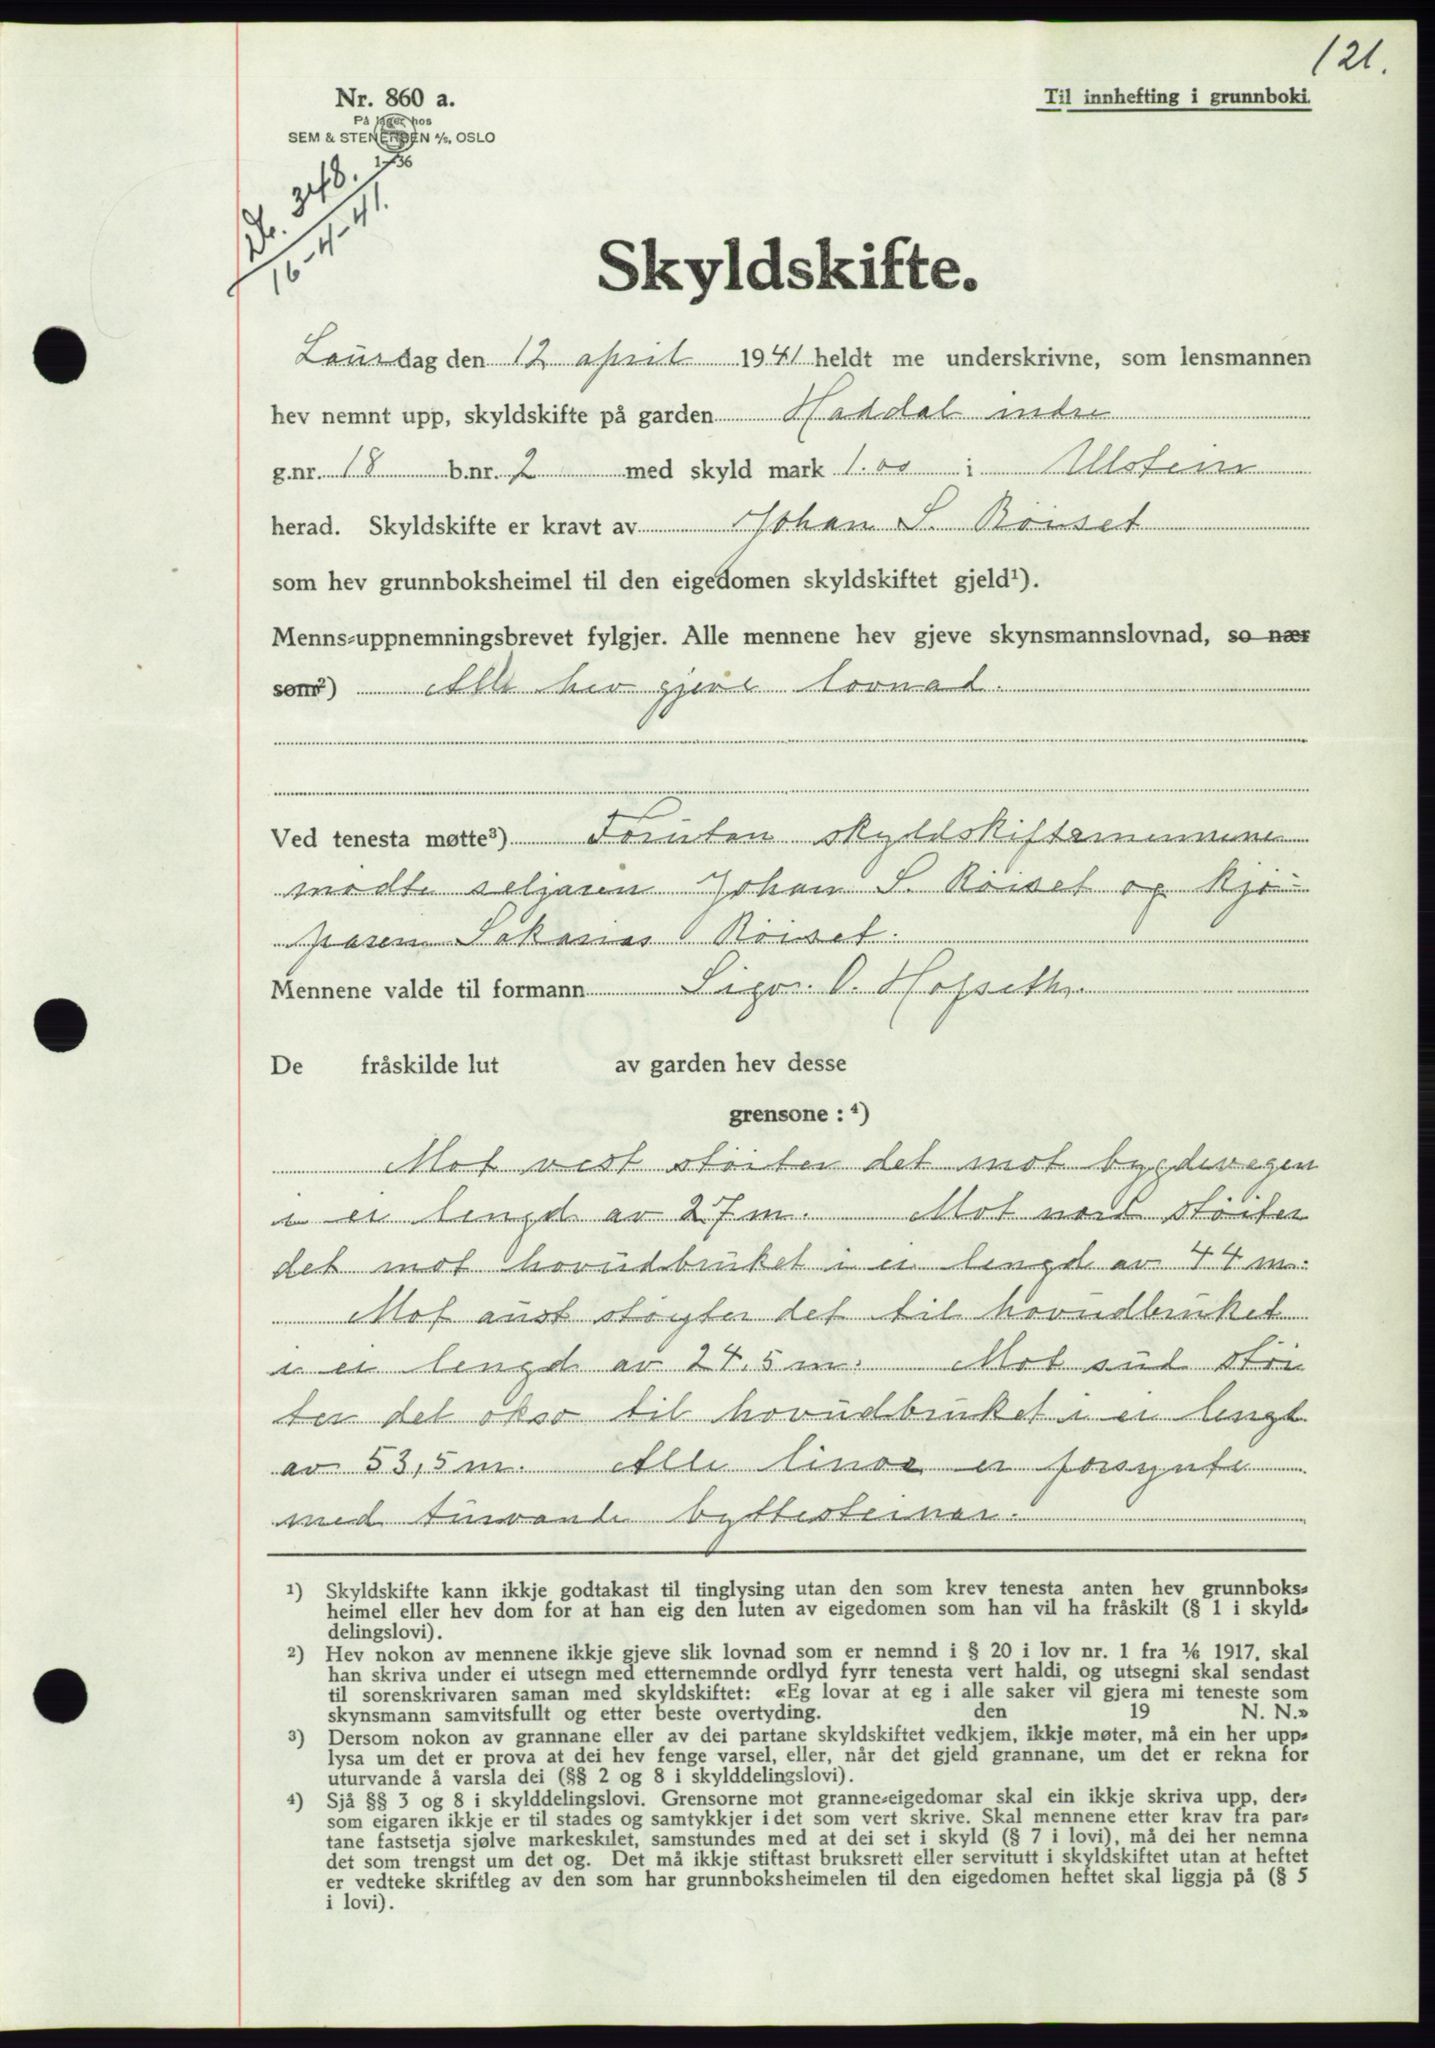 121.
Nr. 860 a.
På lager hos
SEM & STENERSEN A/S, OSLO
1—36
Til innhefting i grunnboki.
Db. 348.
16-4-41.
Skyldskifte.
Laurdag den 12 april 1941 heldt me underskrivne, som lensmannen
hev nemnt upp, skyldskifte på garden Haddal indre
g.nr. 18 b.nr. 2 med skyld mark 1.00 i Ulstein
herad. Skyldskifte er kravt av Johan S. Röiset
som hev grunnboksheimel til den eigedomen skyldskiftet gjeld¹).
Menns-uppnemningsbrevet fylgjer. Alle mennene hev gjeve skynsmannslovnad, so nær
som²) Alle hev gjeve lovnad.
Ved tenesta møtte³) Foruten skyldskiftemennene
mødte seljaren Johan S. Röiset og kjø-
paren Sakarias Röiset.
Mennene valde til formann Sigv. O. Hofseth.
De fråskilde lut av garden hev desse
grensone : ⁴)
Mot vest støiter det mot bygdevegen
i ei lengd av 27 m. Mot nord støiter
det mot hovudbruket i ei lengd av 44 m.
Mot aust støyter det til hovudbruket
i ei lengd av 24.5 m. Mot sud støi
ter det okso til hovudbruket i ei lengd
av 53,5 m. Alle linor er forsynte
med turvande byttesteinar.
¹) Skyldskifte kann ikkje godtakast til tinglysing utan den som krev tenesta anten hev grunnboks-
heimel eller hev dom for at han eig den luten av eigedomen som han vil ha fråskilt (§ 1 i skyld-
delingslovi).
²) Hev nokon av mennene ikkje gjeve slik lovnad som er nemnd i § 20 i lov nr. 1 fra 1/6 1917, skal
han skriva under ei utsegn med etternemnde ordlyd fyrr tenesta vert haldi, og utsegni skal sendast
til sorenskrivaren saman med skyldskiftet: «Eg lovar at eg i alle saker vil gjera mi teneste som
skynsmann samvitsfullt og etter beste overtyding. den 19 N. N.»
³) Dersom nokon av grannane eller av dei partane skyldskiftet vedkjem, ikkje møter, må ein her upp-
lysa um det er prova at dei hev fenge varsel, eller, når det gjeld grannane, um det er rekna for
uturvande å varsla dei (§§ 2 og 8 i skylddelingslovi).
⁴) Sjå §§ 3 og 8 i skylddelingslovi. Grensorne mot granne-eigedomar skal ein ikkje skriva upp, der-
som eigaren ikkje er til stades og samtykkjer i det som vert skrive. Skal mennene etter krav fra par-
tane fastsetja sjølve markeskilet, samstundes med at dei set i skyld (§ 7 i lovi), må dei her nemna
det som trengst um det og. Det må ikkje stiftast bruksrett eller servitutt i skyldskiftet utan at heftet
er vedteke skriftleg av den som har grunnboksheimelen til den eigedomen heftet skal liggja på (§ 5
i lovi).